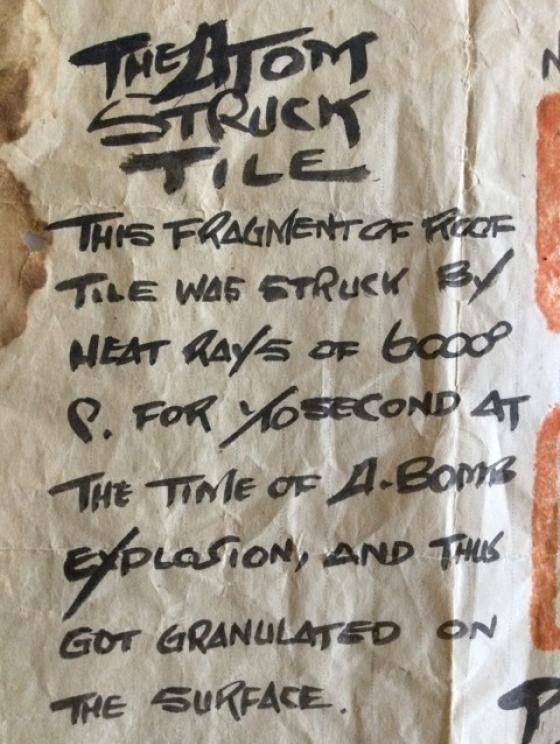 THE ATOM
STRUCK
TILE
THIS FRAGMENT OF ROOF
TILE WAS STRUCK BY
HEAT RAYS OF 6000°
C. FOR 1/10 SECOND AT
THE TIME OF A-BOMB
EXPLOSION, AND THUS
GOT GRANULATED ON
THE SURFACE.